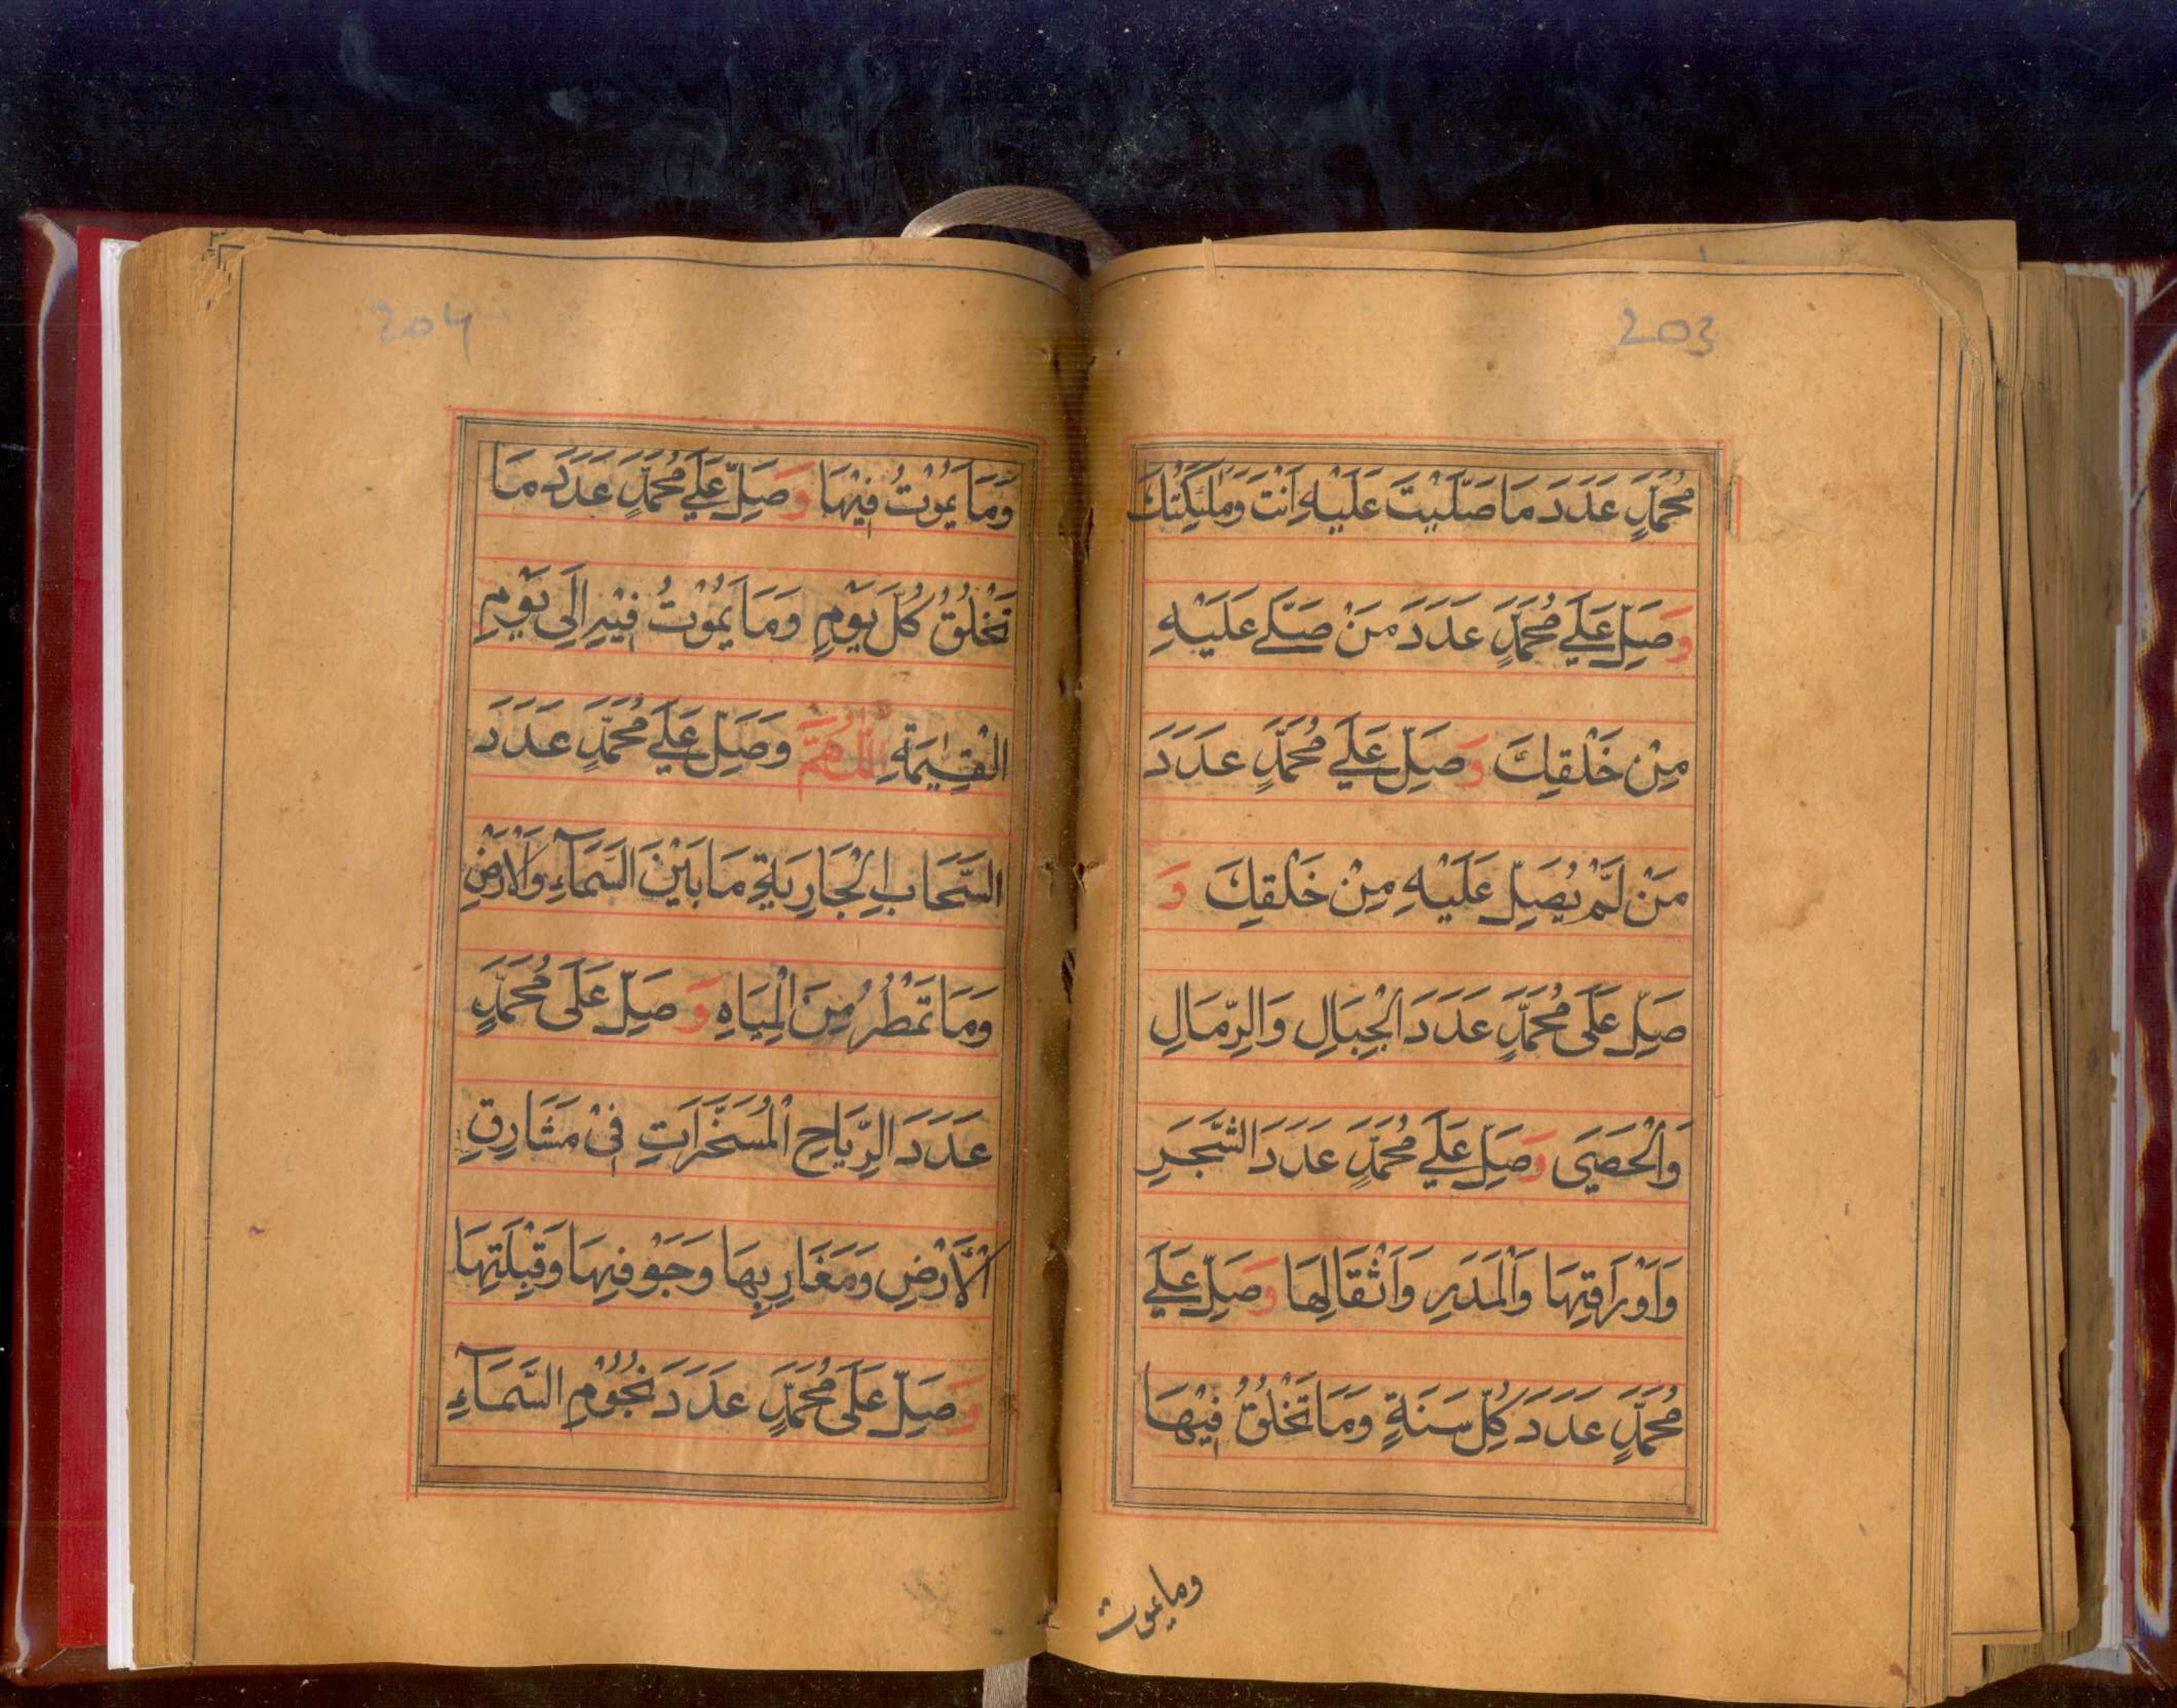 203
مُحَمَّدٍ عَدَدَ مَا صَلَّيْتَ عَلَيْهِ اَنْتَ وَمَلٰئِكَتُكَ
وَصَلِّ عَلٰے مُحَمَّدٍ عَدَدَ مَنْ صَلّٰے عَلَيْهِ
مِنْ خَلْقِكَ وَصَلِّ عَلٰے مُحَمَّدٍ عَدَدَ
مَنْ لَّمْ يُصَلِّ عَلَيْهِ مِنْ خَلْقِكَ وَ
صَلِّ عَلٰى مُحَمَّدٍ عَدَدَ الْجِبَالِ وَالرِّمَالِ
وَالْحَصَى وَصَلِّ عَلٰے مُحَمَّدٍ عَدَدَ الشَّجَرِ
وَاَوْرَاقِهَا وَالْمَدَرِ وَاَثْقَالِهَا وَصَلِّ عَلٰے
مُحَمَّدٍ عَدَدَ كُلِّ سَنَةٍ وَمَا تَخْلُقُ فِيْهَا
وما يموت
204
وَمَا يَمُوْتُ فِيْهَا وَصَلِّ عَلٰے مُحَمَّدٍ عَدَدَ مَا
تَخْلُقُ كُلَّ يَوْمٍ وَمَا يَمُوْتُ فِيْهِ اِلَى يَوْمِ
الْقِيٰمَةِ اَللّٰهُمَّ وَصَلِّ عَلٰے مُحَمَّدٍ عَدَدَ
السَّحَابِ الْجَارِيَةِ مَا بَيْنَ السَّمَآءِ وَالْاَرْضِ
وَمَا تَمْطُرُ مِنَ الْمِيَاهِ وَصَلِّ عَلٰى مُحَمَّدٍ
عَدَدَ الرِّيَاحِ الْمُسَخَّرَاتِ فِىْ مَشَارِقِ
الْأَرْضِ وَمَغَارِبِهَا وَجَوْفِهَا وَقِبْلَتِهَا
وَصَلِّ عَلٰى مُحَمَّدٍ عَدَدَ نُجُوْمِ السَّمَآءِ